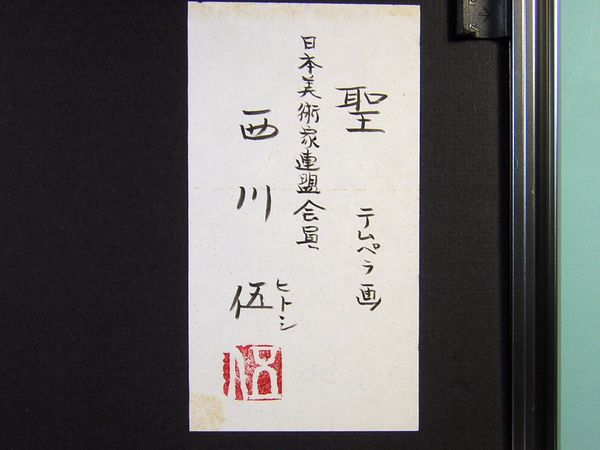 聖
テムペラ画
日本美術家連盟会員
西川伍
ヒトシ